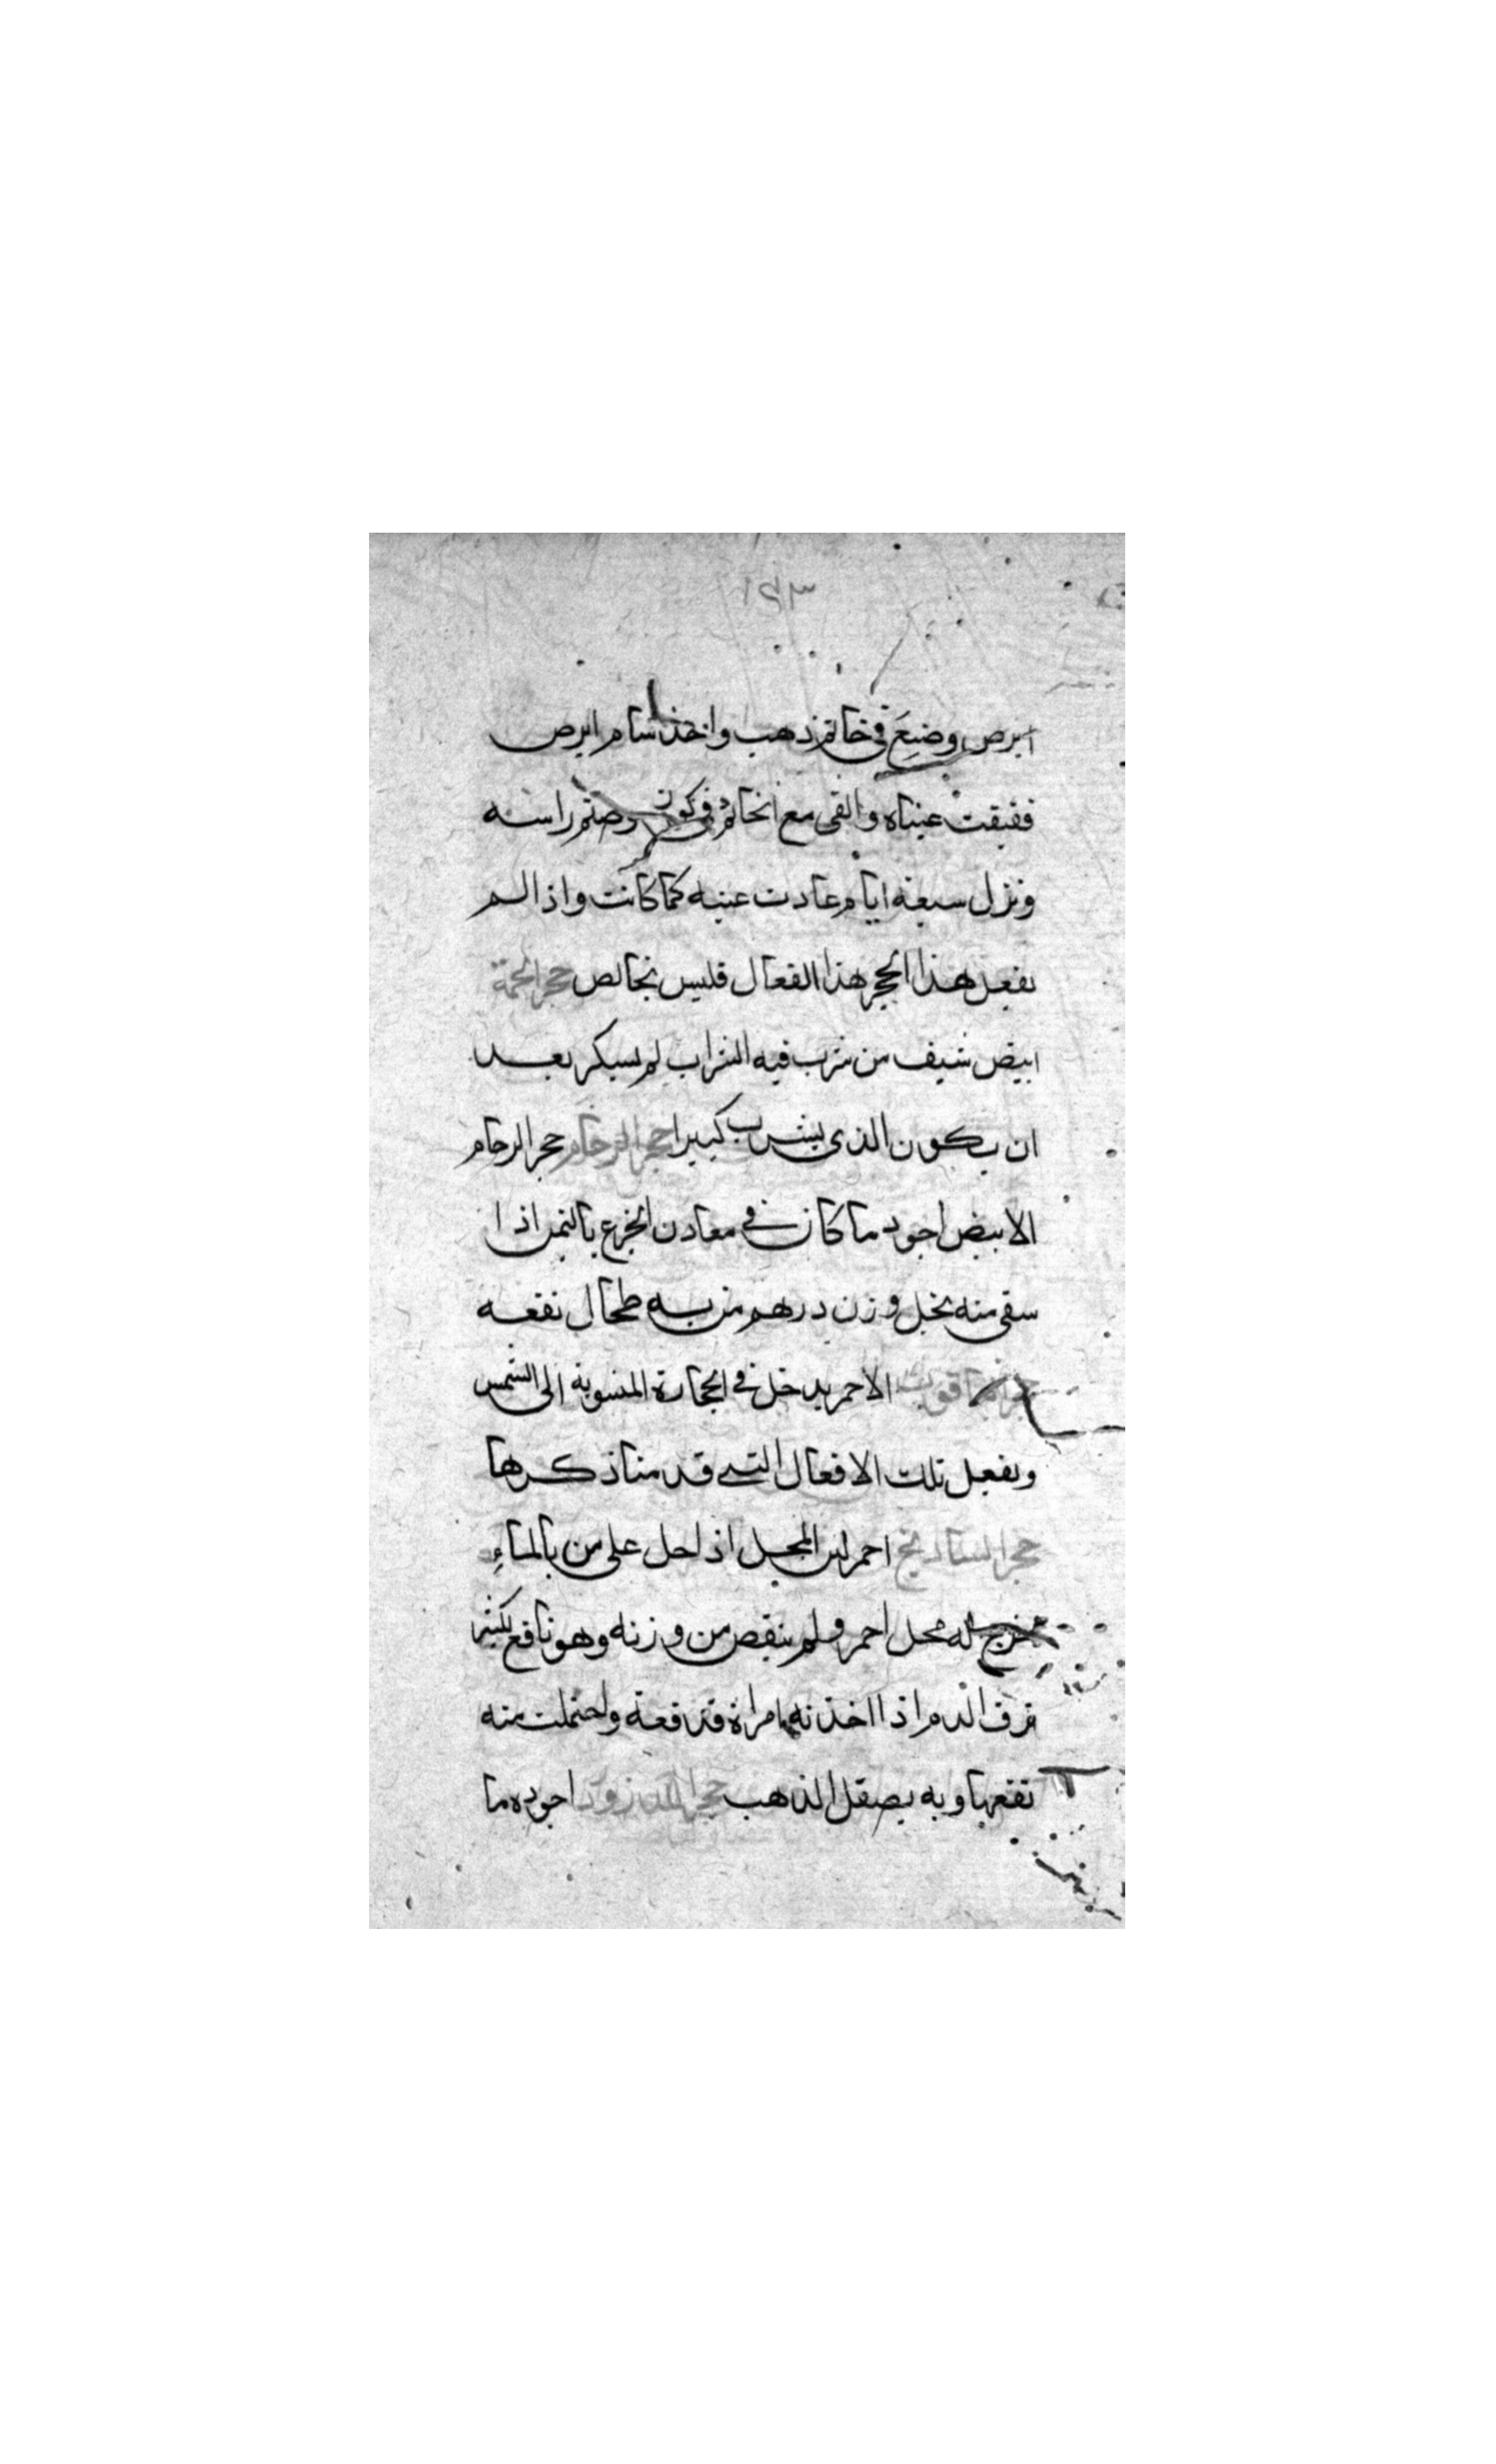 ١٤٣
ابرص وضع في خاتم ذهب واخذ سام ابرص
ففيقت عيناه والقى مع الخاتم في كوز وختم راسه
ونزل سبعة ايام عادت عينه كما كانت واذا لم
يفعل هذا الحجر هذا الفعال فليس بخالص حجر
ابيض شيف من شرب فيه الشراب لم يسكر بعد
ان يكون الذي يشرب كبيرا حجر الرخام حجر الرخام
الابيض اجود ما كان في معادن الجزع باليمن اذا
سقى منه بخل وزن درهم من به طحال نفعه
حجر الياقوت الاحمر يدخل في الحجارة المنسوبة الى الشمس
ويفعل تلك الافعال التي قدمنا ذكرها
حجر الشادنج احمر لين المجل اذا حل على من بالماء
يخرج له محل احمر ولم ينقص من وزنه وهو نافع لكثير
نزف الدم اذا اخذته امراة قد رفعة واحتملت منه
نفعها وبه يصقل الذهب حجر اللازورد اجوده ما